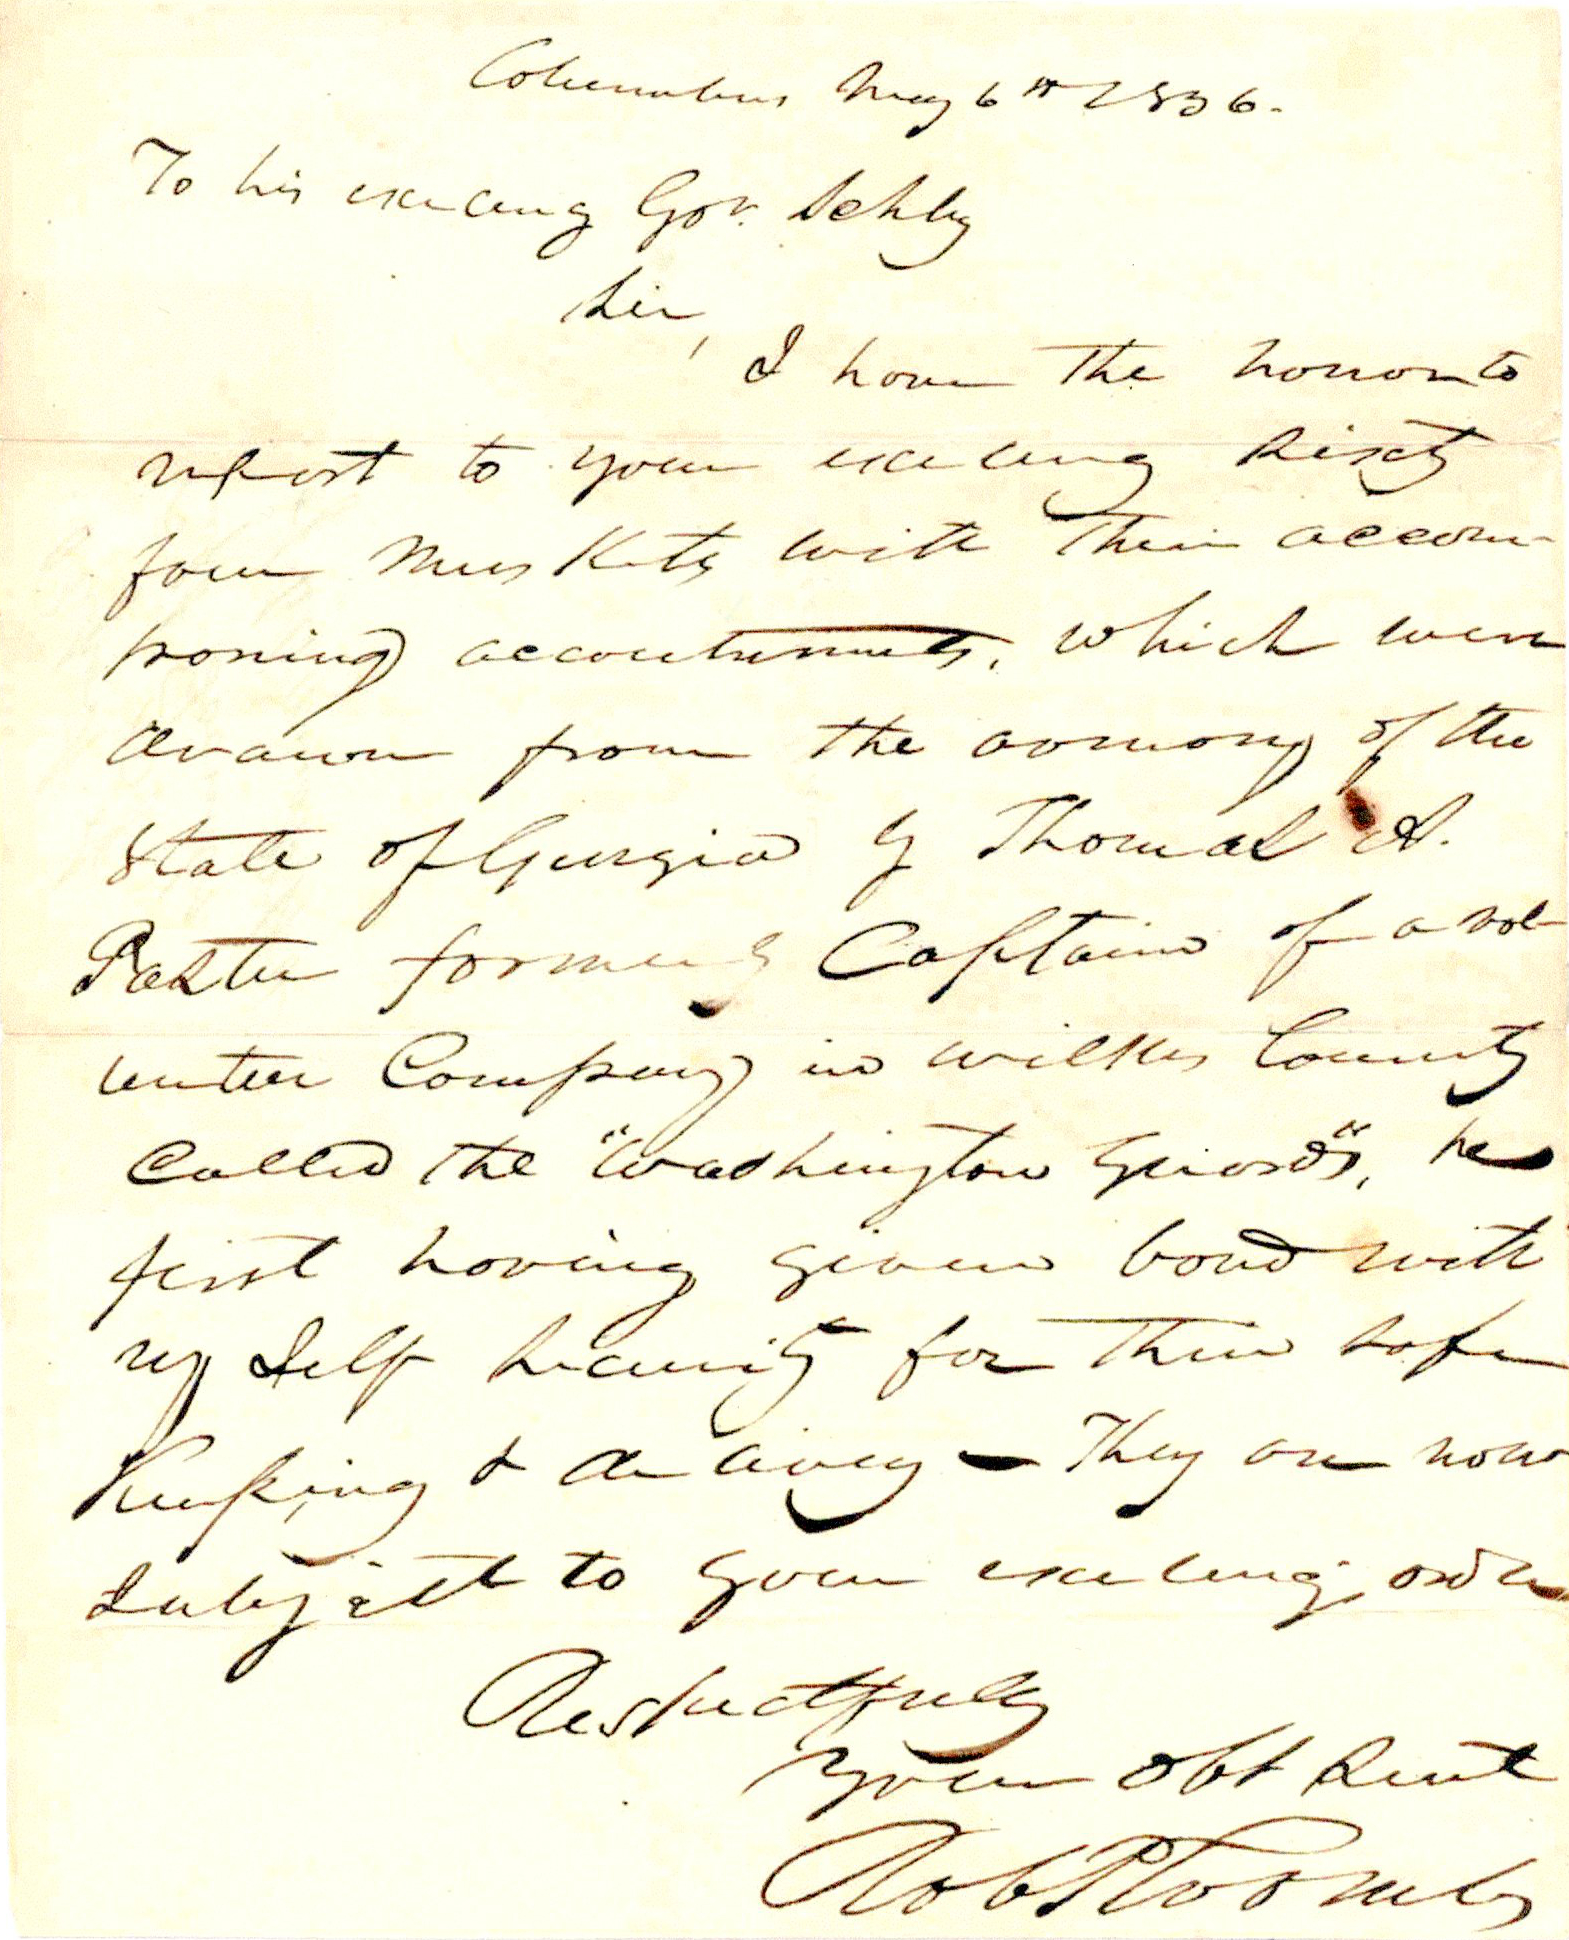 Columbus May 6th 1836.
To his excelency Gov. Schley
Sir,
I have the honor to
report to your excelency Sixty
four Muskets with their accom-
paning accoutrements, which were
drawn from the armory of the
State of Georgia by Thomas A.
Pasteur formerly Captain of a vol-
unteer Company in Wilkes County
Called the "Washington Guards", he
first having given bond with
my Self Security for their safe
Keeping & delivery — They are now
Subject to your excelency order
Respectfully
your obt Servt
Rob. Toombs